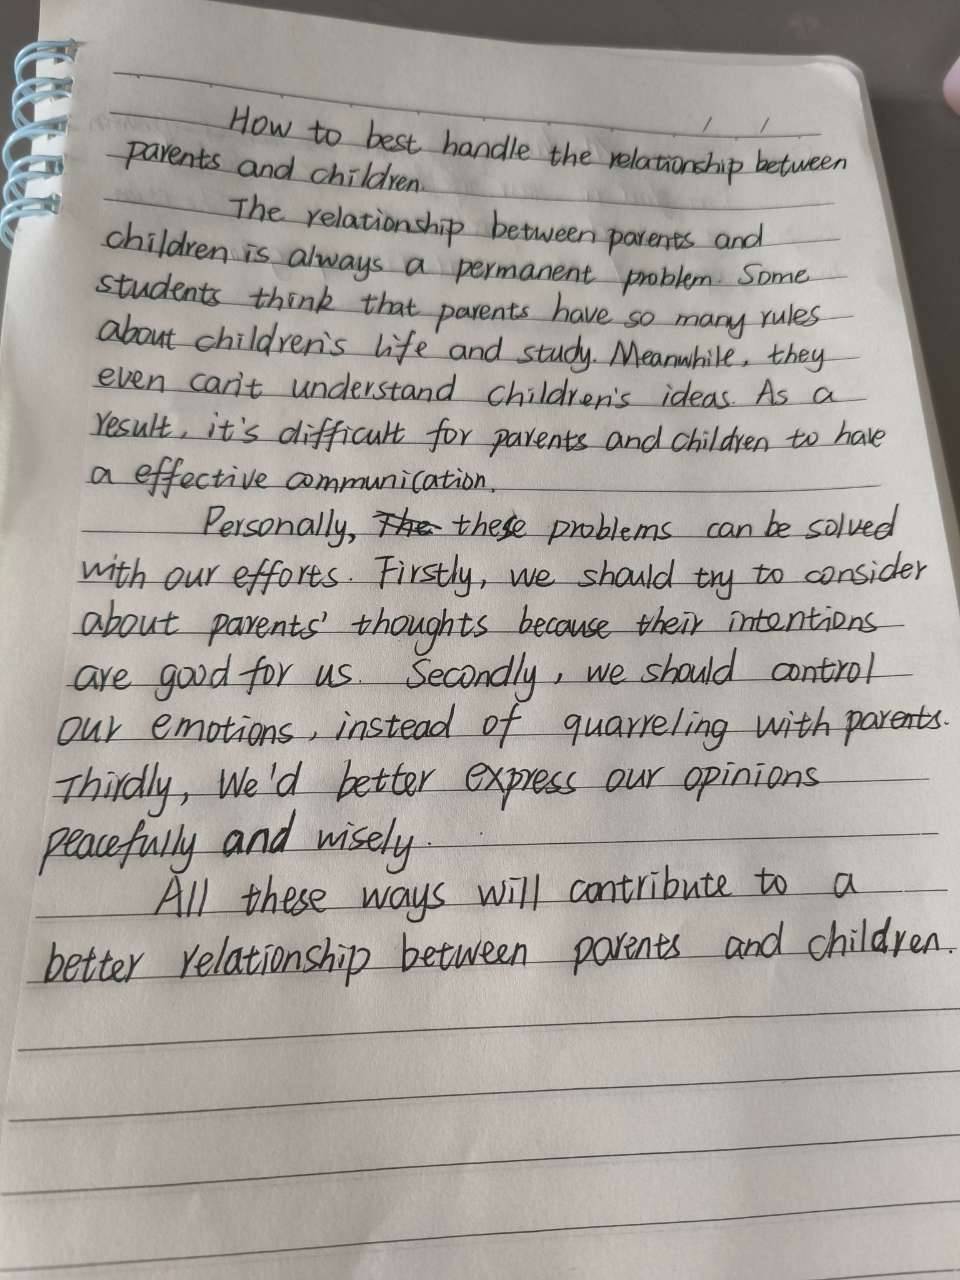 How to best handle the relationship between
parents and children.
The relationship between parents and
children is always a permanent problem. Some
students think that parents have so many rules
about children's life and study. Meanwhile, they
even can't understand children's ideas. As a
result, it's difficult for parents and children to have
a effective communication.
Personally, The these problems can be solved
with our efforts. Firstly, we should try to consider
about parents' thoughts because their intentions
are good for us. Secondly, we should control
our emotions, instead of quarreling with parents.
Thirdly, We'd better express our opinions
peacefully and wisely.
All these ways will contribute to a
better relationship between parents and children.